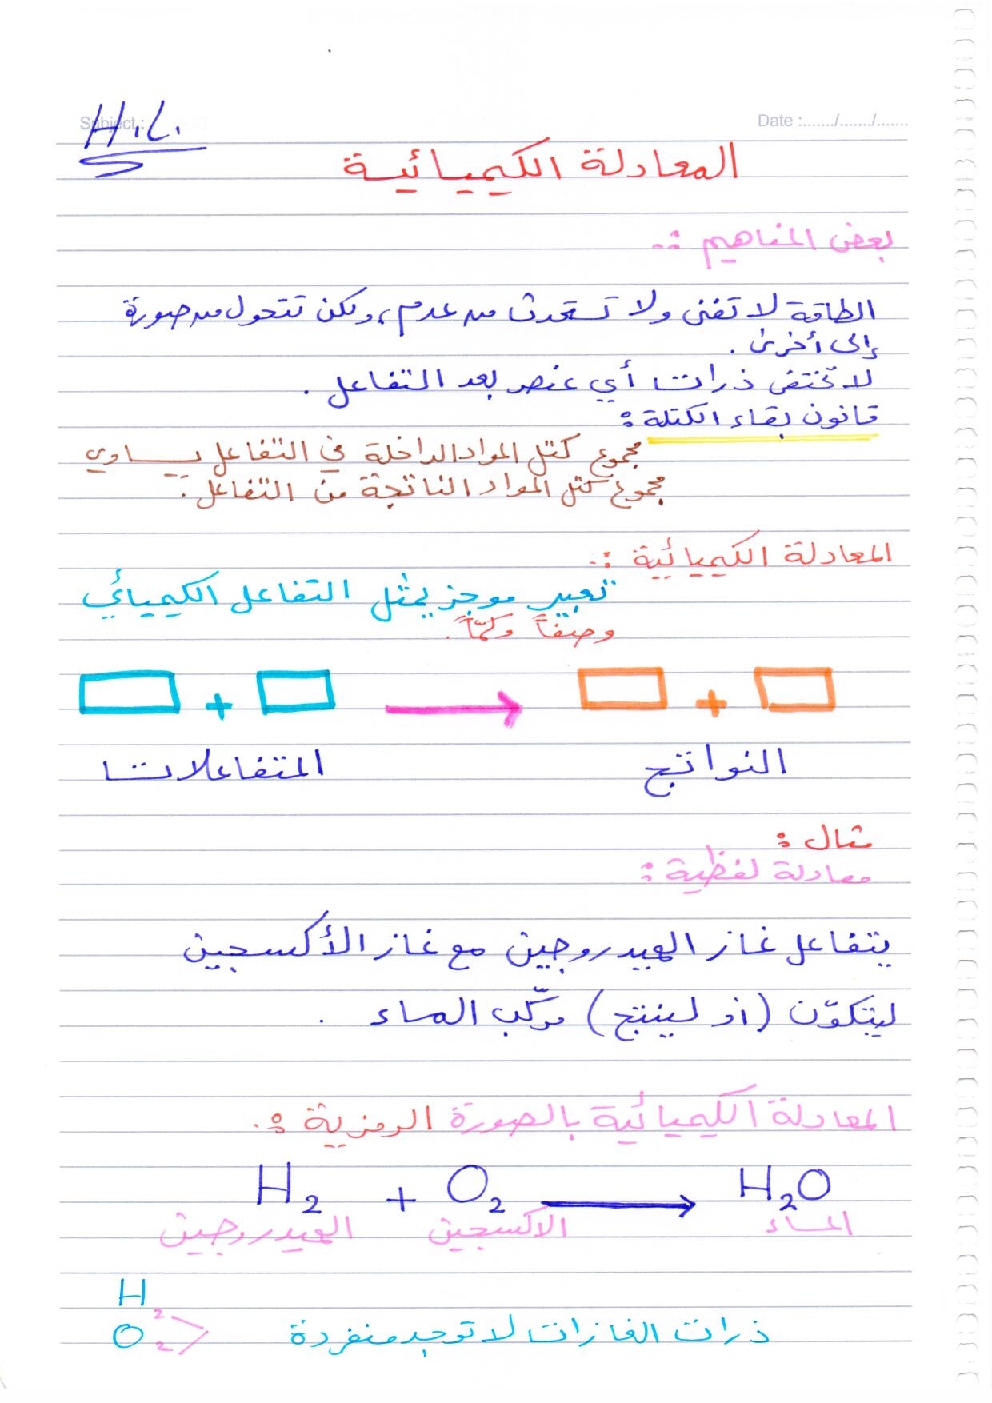 Subject :
H.L.
Date :......./......./.......
المعادلة الكيميائية
بعض المفاهيم :
الطاقة لا تفنى ولا تستحدث من عدم، ولكن تتحول من صورة
إلى أخرى .
لا تختفي ذرات أي عنصر بعد التفاعل .
قانون بقاء الكتلة :
مجموع كتل المواد الداخلة في التفاعل يساوي
مجموع كتل المواد الناتجة من التفاعل .
المعادلة الكيميائية :
تعبير موجز يمثل التفاعل الكيميائي
وصفاً وكمّاً .
+ → +
المتفاعلات النواتج
مثال :
معادلة لفظية :
يتفاعل غاز الهيدروجين مع غاز الأكسجين
ليتكوّن (أو لينتج) مركّب الماء .
المعادلة الكيميائية بالصورة الرمزية :
H₂ + O₂ → H₂O
الهيدروجين الاكسجين الماء
H₂
O₂ > ذرات الغازات لا توجد منفردة